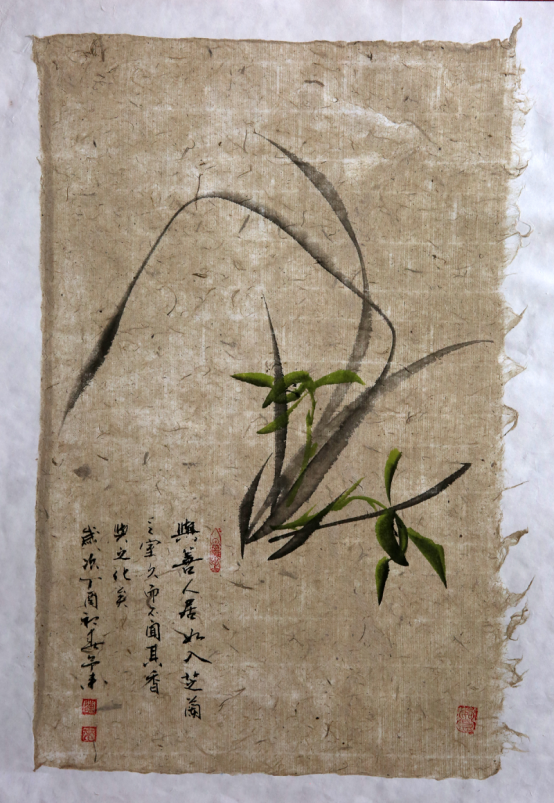 與善人居如入芝蘭
之室久而不聞其香
與之化矣
歲次丁酉初春